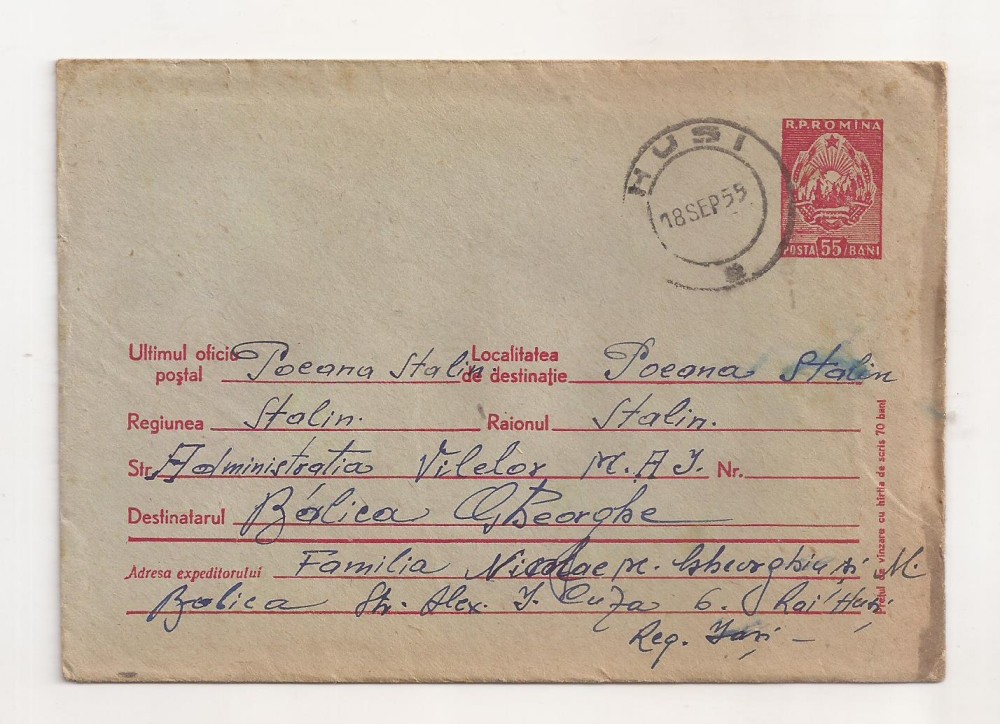 HUSI
18 SEP 55
R.P.ROMINA
POSTA 55 BANI
Ultimul oficiu poştal Poeana Stalin. Localitatea de destinaţie Poeana Stalin
Regiunea Stalin. Raionul Stalin.
Str. Administratia Vilelor M.A.I. Nr.
Destinatarul Bálica Gheorghe
Adresa expeditorului Familia Nicolae M. Gheorghiu şi M.
Balica Str. Alex. I. Cuza 6. Rai Huşi
Reg. Iaşi –
Preţul de vînzare cu hîrtia de scris 70 bani